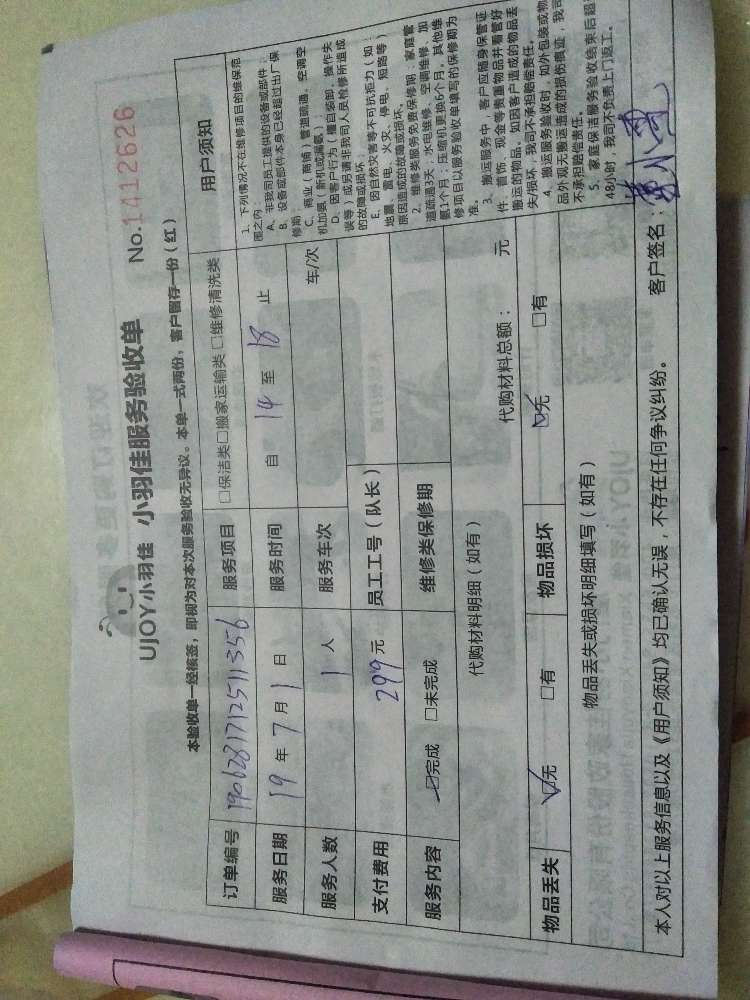 UJOY小羽佳 小羽佳服务验收单 No.1412626
本验收单一经核签，即视为对本次服务验收无异议。本单一式两份，客户留存一份（红）
订单编号 190628171251356 服务项目 □保洁类□搬家运输类□维修清洗类
服务日期 19 年 7 月 1 日 服务时间 自 14 至 18 止
服务人数 1 人 服务车次 车/次
支付费用 299 元 员工工号（队长）
服务内容 ☑完成 □未完成 维修类保修期
代购材料明细（如有）
代购材料总额： 元
物品丢失 ☑无 □有 物品损坏 ☑无 □有
物品丢失或损坏明细填写（如有）
用户须知
1、下列情况不在维修项目的维保范
围之内：
A、非我司员工提供的设备或部件；
B、设备或部件本身已经超过出厂保
修期；
C、商业（商铺）管道疏通、空调空
机加氨（新机或漏氨）；
D、因客户行为（擅自装卸、操作失
误等）或另请非我司人员检修所造成
的故障或损坏；
E、因自然灾害等不可抗拒力（如
地震、雷电、火灾、停电、短路等）
原因造成的故障或损坏。
2、维修类服务免费保修期：家庭管
道疏通3天；水电维修、空调维修、加
氨1个月；压缩机更换6个月。其他维
修项目以服务验收单填写的保修期为
准。
3、搬运服务中，客户应随身保管证
件、首饰、现金等贵重物品并看管好
搬运的物品。如因客户造成的物品丢
失/损坏，我司不承担赔偿责任。
4、搬运服务验收时，如外包装或物
品外观无搬运造成的损伤痕迹，我司
不承担赔偿责任。
5、家庭保洁服务验收结束后超
48小时，我司不负责上门返工。
本人对以上服务信息以及《用户须知》均已确认无误，不存在任何争议纠纷。 客户签名：